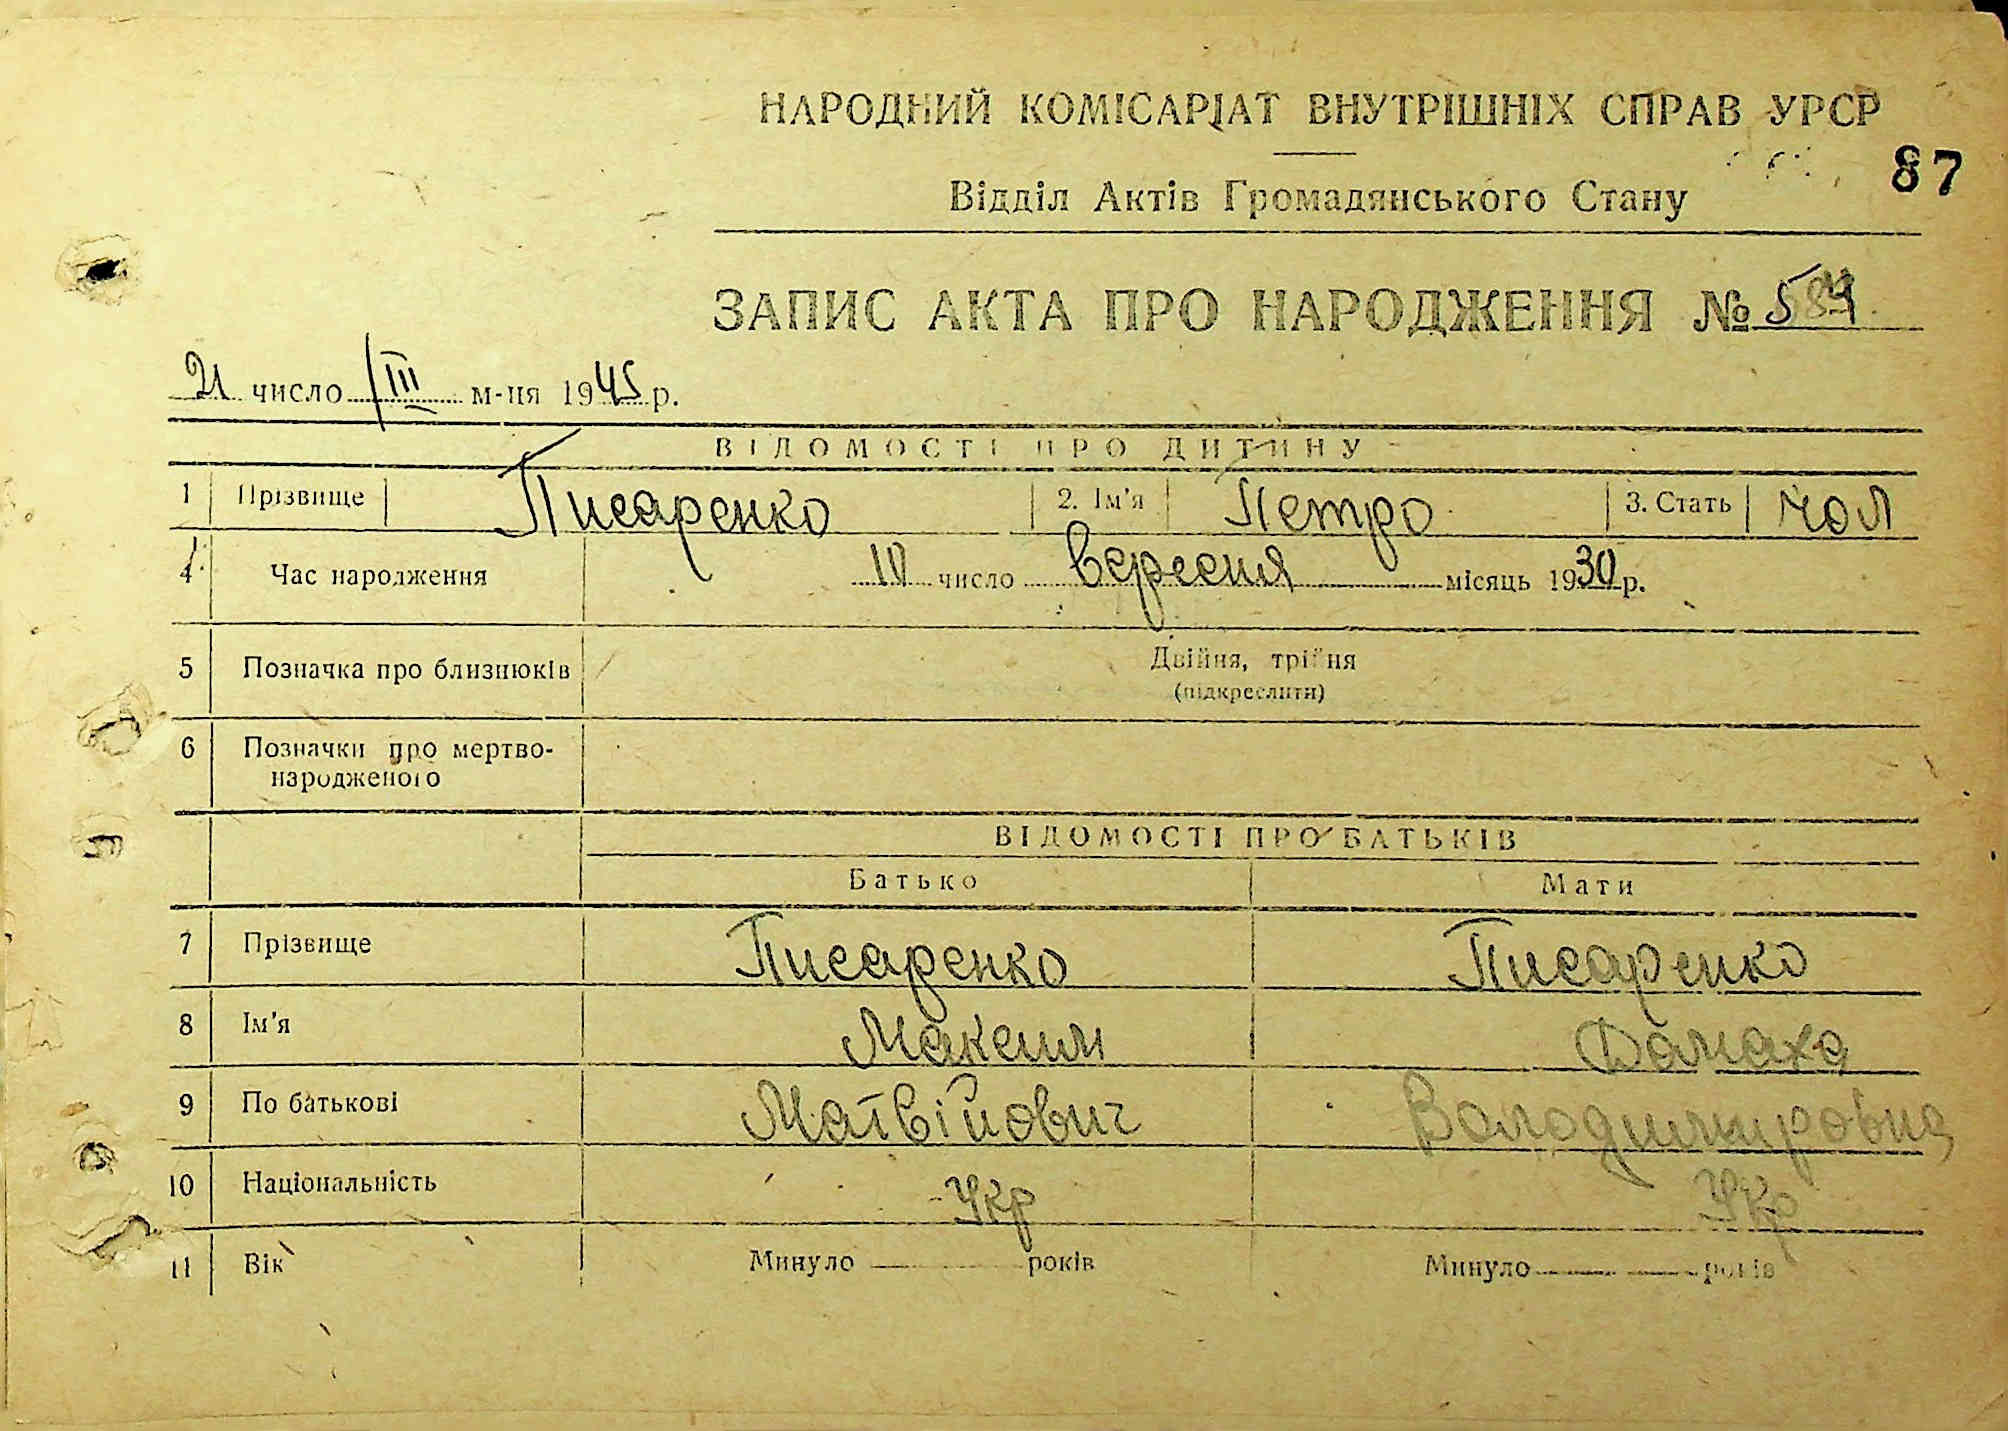 НАРОДНИЙ КОМІСАРІАТ ВНУТРІШНІХ СПРАВ УРСР
87
Відділ Актів Громадянського Стану
ЗАПИС АКТА ПРО НАРОДЖЕННЯ №
21 число III м-ця 1945 р.
ВІДОМОСТІ ПРО ДИТИНУ
1 Прізвище Писаренко 2. Ім'я Петро 3. Стать чол
4 Час народження 10 число вересня місяць 1930 р.
5 Позначка про близнюків Двійня, трійня
(підкреслити)
6 Позначки про мертво-
народженого
ВІДОМОСТІ ПРО БАТЬКІВ
Батько Мати
7 Прізвище Писаренко Писаренко
8 Ім'я Максим Домаха
9 По батькові Матвійович Володимировна
10 Національність Укр Укр
11 Вік Минуло років Минуло років